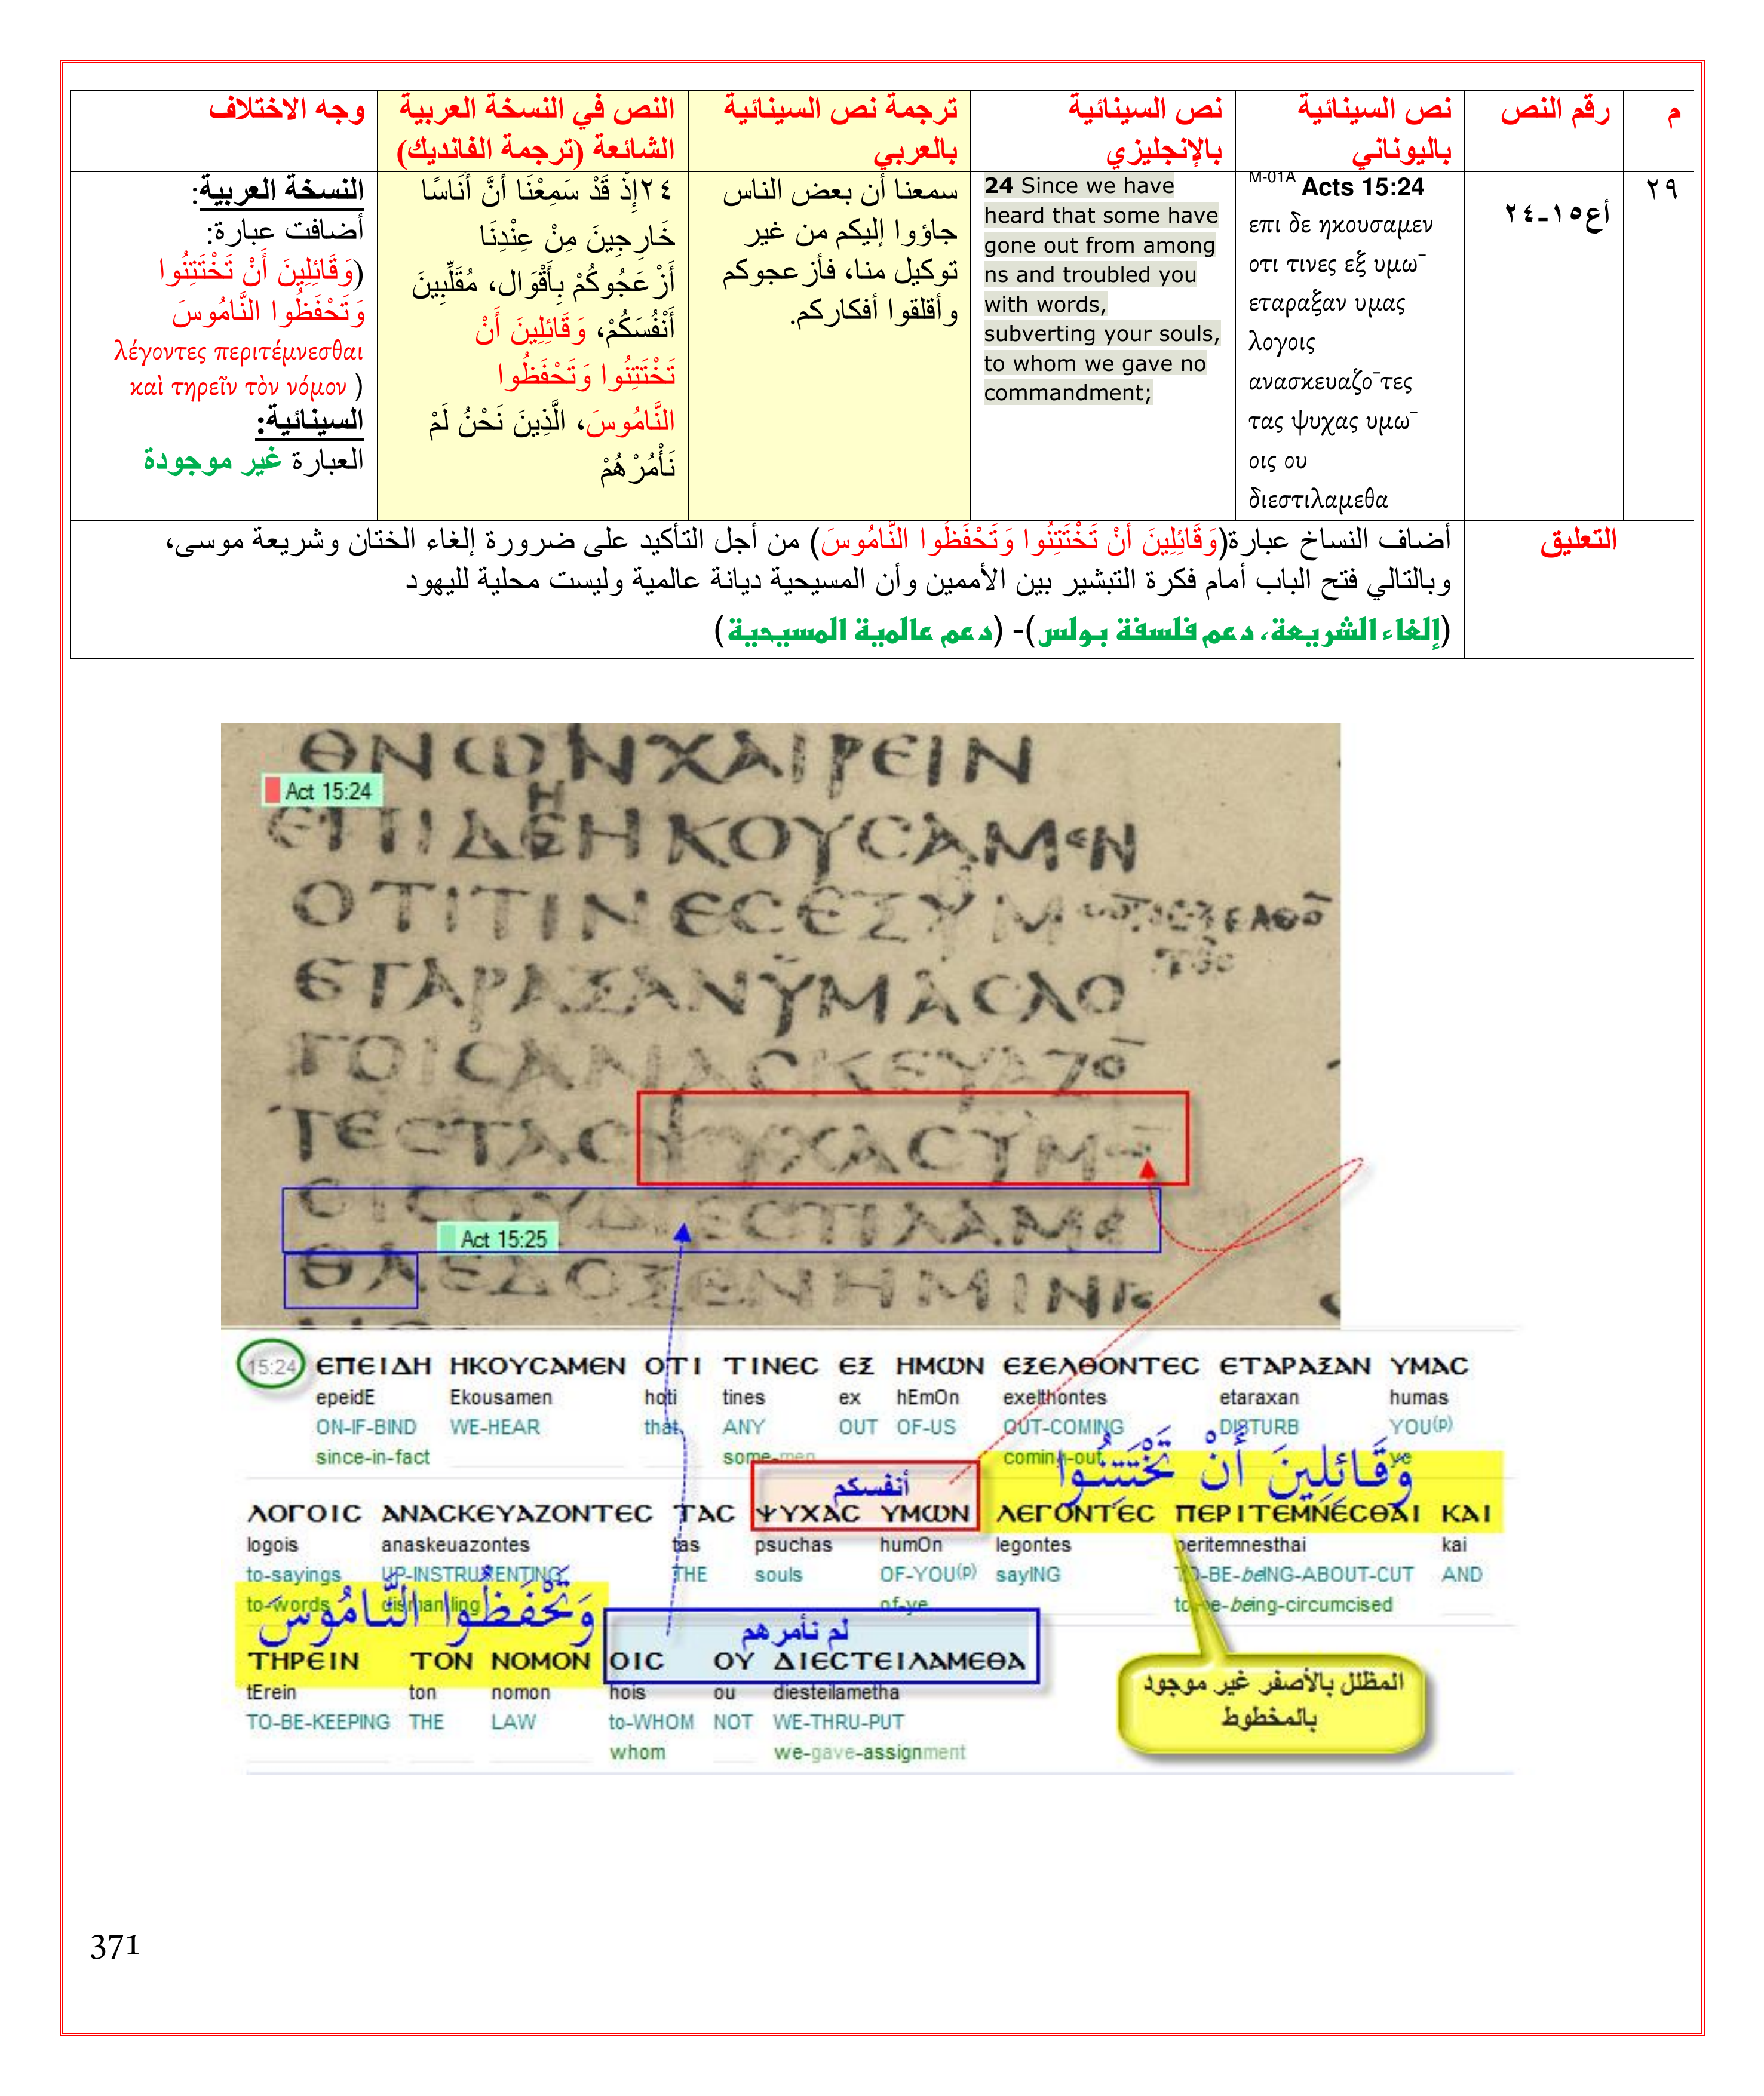 م
رقم النص
نص السينائية
باليوناني
نص السينائية
بالإنجليزي
ترجمة نص السينائية
بالعربي
النص في النسخة العربية
الشائعة (ترجمة الفانديك)
وجه الاختلاف
٢٩
أع١٥-٢٤
M-01A Acts 15:24
επι δε ηκουσαμεν
οτι τινες εξ υμω¯
εταραξαν υμας
λογοις
ανασκευαζο¯τες
τας ψυχας υμω¯
οις ου
διεστιλαμεθα
24 Since we have
heard that some have
gone out from among
ns and troubled you
with words,
subverting your souls,
to whom we gave no
commandment;
سمعنا أن بعض الناس
جاؤوا إليكم من غير
توكيل منا، فأزعجوكم
وأقلقوا أفكاركم.
٢٤إِذْ قَدْ سَمِعْنَا أَنَّ أُنَاسًا
خَارِجِينَ مِنْ عِنْدِنَا
أَزْعَجُوكُمْ بِأَقْوَال، مُقَلِّبِينَ
أَنْفُسَكُمْ، وَقَائِلِينَ أَنْ
تَخْتَتِنُوا وَتَحْفَظُوا
النَّامُوسَ، الَّذِينَ نَحْنُ لَمْ
نَأْمُرْهُمْ
النسخة العربية:
أضافت عبارة:
(وَقَائِلِينَ أَنْ تَخْتَتِنُوا
وَتَحْفَظُوا النَّامُوسَ
λέγοντες περιτέμνεσθαι
καὶ τηρεῖν τὸν νόμον )
السينائية:
العبارة غير موجودة
التعليق
أضاف النساخ عبارة(وَقَائِلِينَ أَنْ تَخْتَتِنُوا وَتَحْفَظُوا النَّامُوسَ) من أجل التأكيد على ضرورة إلغاء الختان وشريعة موسى،
وبالتالي فتح الباب أمام فكرة التبشير بين الأممين وأن المسيحية ديانة عالمية وليست محلية لليهود
(إلغاء الشريعة، دعم فلسفة بولس)- (دعم عالمية المسيحية)
ΘΝΩΝΧΑΙΡΕΙΝ
Act 15:24
ΕΠΙΔΕΗΚΟΥСΑΜΕΝ
ΟΤΙΤΙΝΕСΕΞΥΜ
ΕΤΑΡΑΞΑΝΥΜΑСΛΟ
ΓΟΙСΑΝΑСΚΕΥΑΖΟ
ΤΕСΤΑСΨΥΧΑСΥΜ
ΟΙСΟΥΔΙΕСΤΙΛΑΜΕ
Act 15:25
ΘΑΕΔΟΞΕΝΗΜΙΝ
15:24 ЄΠЄΙΔΗ ΗΚΟΥСΑΜЄΝ ΟΤΙ ΤΙΝЄС ЄΞ ΗΜΩΝ ЄΞЄΛΘΟΝΤЄС ЄΤΑΡΑΞΑΝ ΥΜΑС
epeidE Ekousamen hoti tines ex hEmOn exelthontes etaraxan humas
ON-IF-BIND WE-HEAR that ANY OUT OF-US OUT-COMING DISTURB YOU(p)
since-in-fact some-men coming-out ye
وَقَائِلِينَ أَنْ تَخْتَتِنُوا
أنفسكم
ΛΟΓΟΙС ΑΝΑСΚЄΥΑΖΟΝΤЄС ΤΑС ΨΥΧΑС ΥΜΩΝ ΛЄΓΟΝΤЄС ΠЄΡΙΤЄΜΝЄСΘΑΙ ΚΑΙ
logois anaskeuazontes tas psuchas humOn legontes peritemnesthai kai
to-sayings UP-INSTRUMENTING THE souls OF-YOU(p) sayING TO-BE-beING-ABOUT-CUT AND
to-words dismantling of-ye to-be-being-circumcised
وَتَحْفَظُوا النَّامُوسَ
لم نأمرهم
ΤΗΡЄΙΝ ΤΟΝ ΝΟΜΟΝ ΟΙС ΟΥ ΔΙЄСΤЄΙΛΑΜЄΘΑ
tErein ton nomon hois ou diesteilametha
TO-BE-KEEPING THE LAW to-WHOM NOT WE-THRU-PUT
whom we-gave-assignment
المظلل بالأصفر غير موجود
بالمخطوط
371